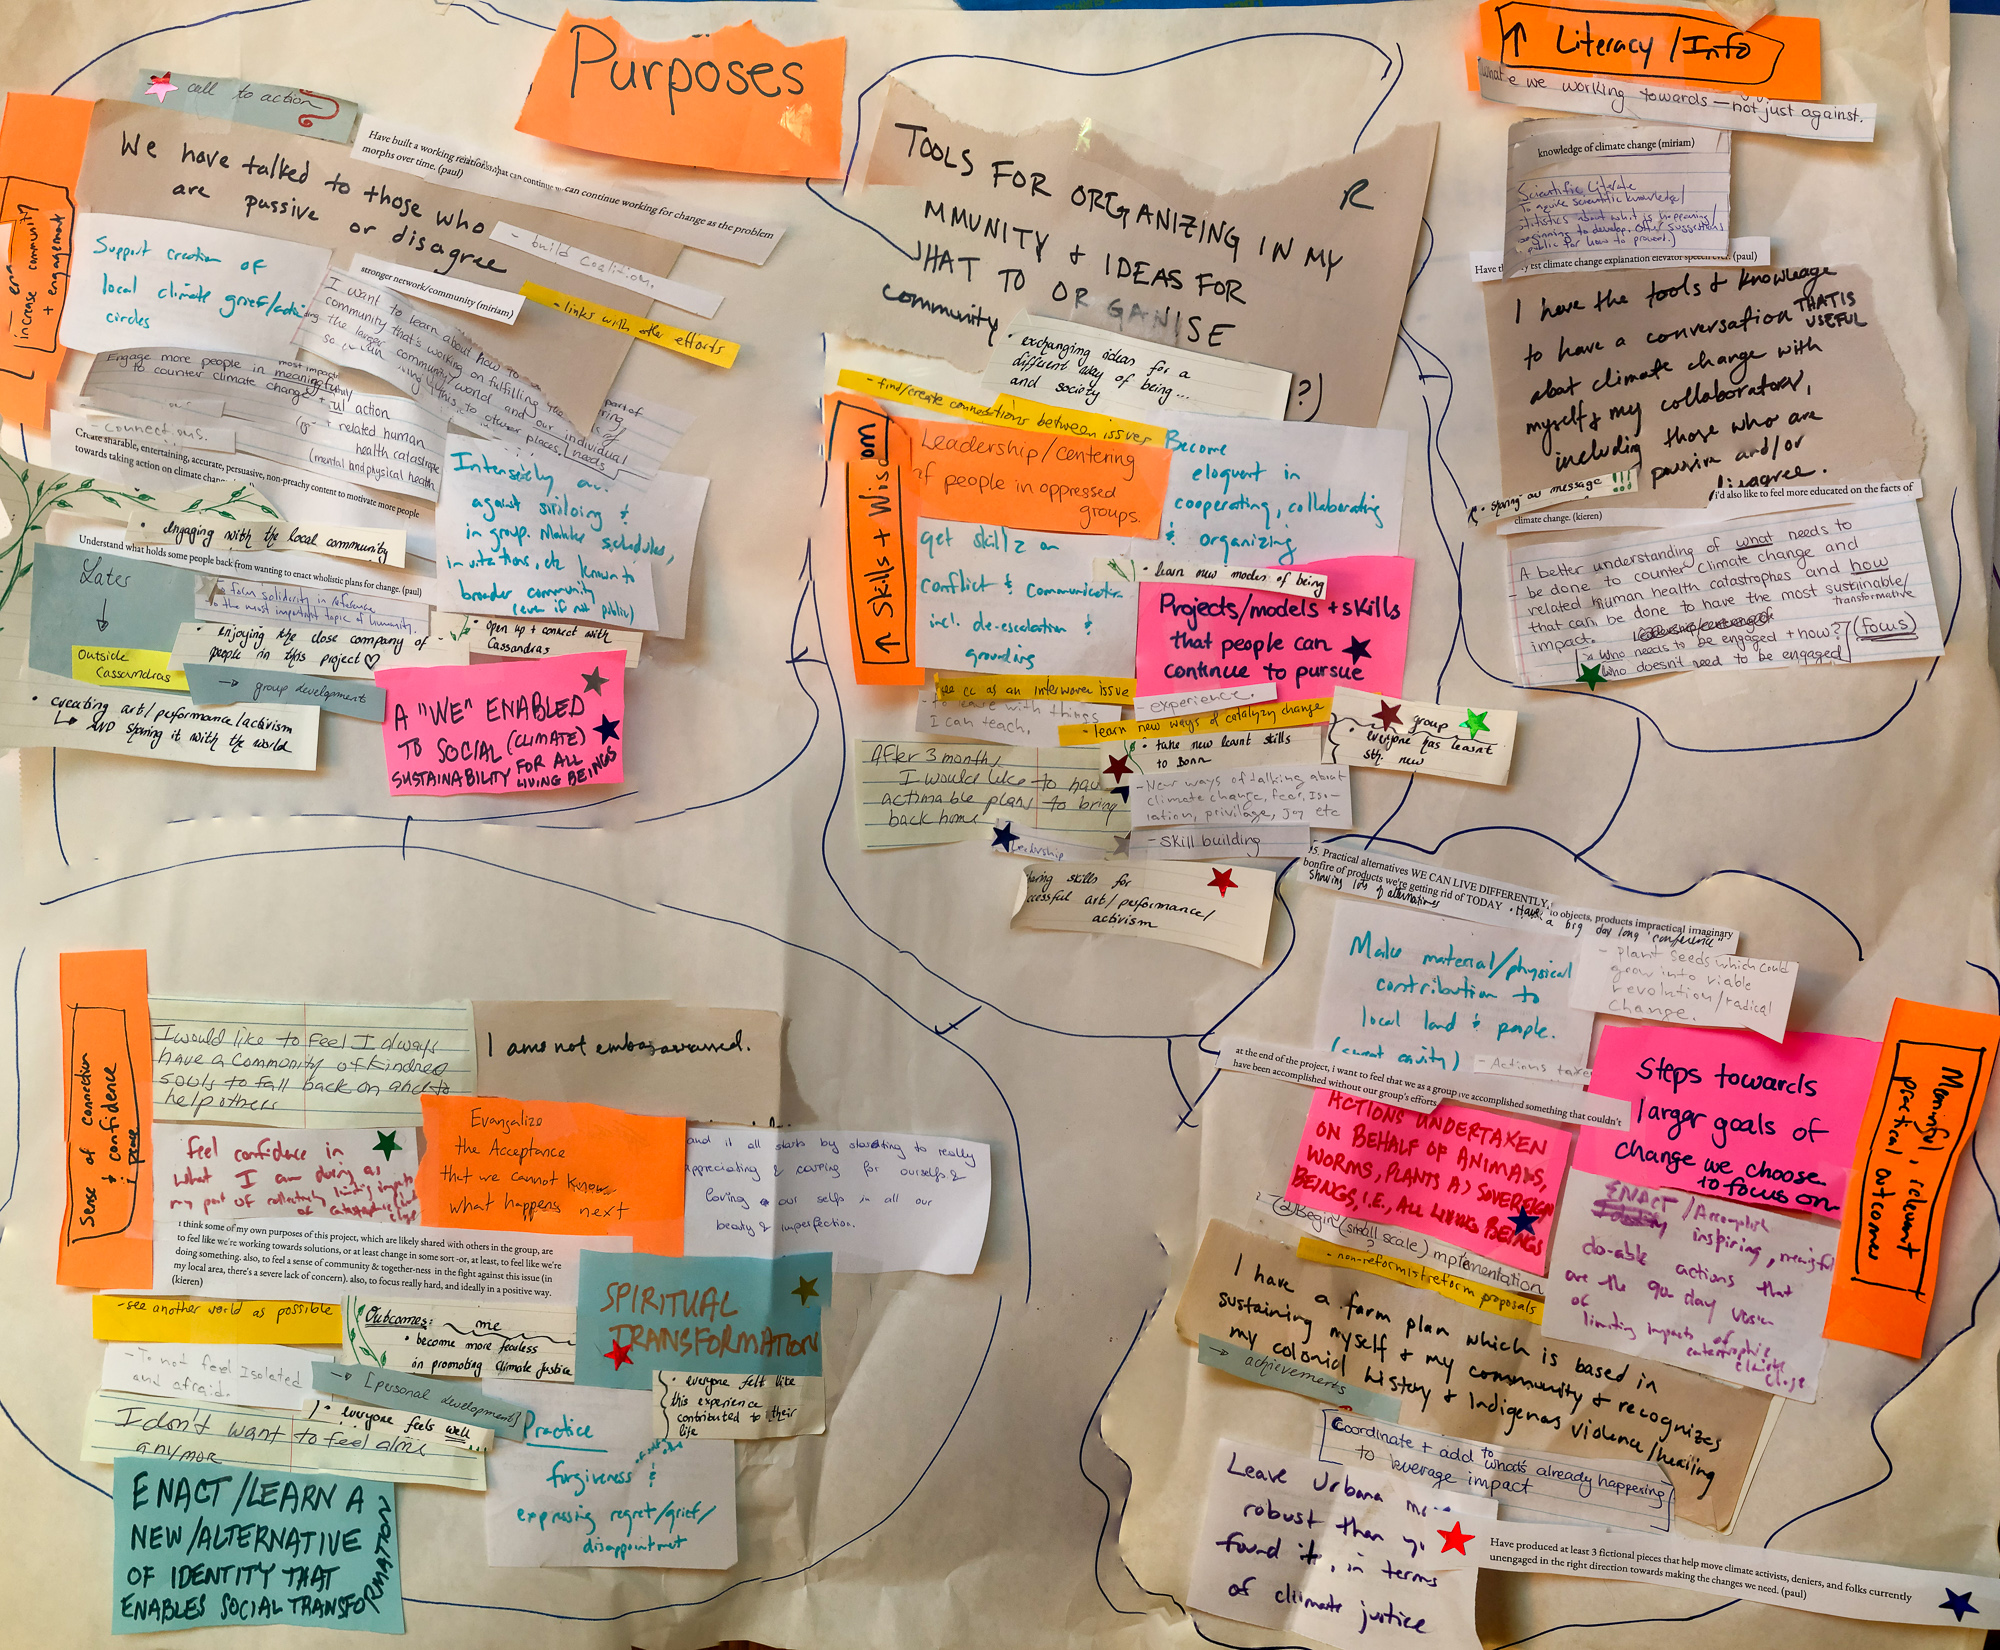 Purposes
call to action
We have talked to those who
are passive
or disagree
Have built a working
can continue working for change as the problem
morphs over time. (paul)
- build coalition.
increase community
+ engagement
Support creation of
local climate grief/
circles
stronger network/community (miriam)
- links with other efforts
I want to learn about how to
community that's working on fulfilling
the larger community/world and our individual
needs
Engage more people in meaningfully
most
to counter climate change +
action
+ related human
health catastrophe
(mental and physical health
- connections.
Create sharable, entertaining, accurate, persuasive, non-preachy content to motivate more people
towards taking action on climate
• engaging with the local community
Understand what holds some people back from wanting to enact wholistic plans for change. (paul)
Later
Form solidarity in reference
to the most important topic of humanity.
• enjoying the close company of
people in this project
Intensely
against
in group. Make schedules,
invitations, etc known to
broader community
(even if not public)
• open up + connect with
Cassandras
Outside
Cassandras
→ group development
• creating art/performance/activism
↳ AND sharing it with the world
A "WE" ENABLED
TO SOCIAL (CLIMATE)
SUSTAINABILITY FOR ALL
LIVING BEINGS
TOOLS FOR ORGANIZING IN MY
R
MMUNITY + IDEAS FOR
HAT TO ORGANISE
community
?)
• exchanging ideas for a
different way of being...
and society
- find/create connections between issues
↑ Skills + Wisdom
Leadership/centering
of people in oppressed
groups.
Become
eloquent in
cooperating, collaborating
& organizing
get skillz on
conflict & communication
incl. de-escalation &
grounding
• learn new modes of being
Projects/models + skills
that people can
continue to pursue
see cc as an interwoven issue
- to leave with things
I can teach.
- experience.
- learn new ways of catalyzing change
group
• everyone has learnt
sth. new
• take new learnt skills
to Bonn
After 3 months,
I would like to have
actionable plans to bring
back home
- New ways of talking about
climate change, fear, Iso-
lation, privilage, joy etc
Leadership
- skill building
skills for
art/performance/
activism
↑ Literacy/Info
we working towards — not just against.
knowledge of climate change (miriam)
Scientific Literate
To acquire scientific knowledge/
statistics about what is happening/
beginning to develop. Offer suggestions
public for how to proceed.)
est climate change explanation elevator speech ever. (paul)
I have the tools & knowledge
THAT IS
USEFUL
to have a conversation
about climate change with
myself & my collaborators,
including those who are
passive and/or
disagree.
• sharing our message !!!
i'd also like to feel more educated on the facts of
climate change. (kieren)
A better understanding of what needs to
be done to counter climate change and
related human health catastrophes and how
that can be done to have the most sustainable/
transformative
impact.
who needs to be engaged + how?
(focus)
who doesn't need to be engaged
Sense of connection
+ confidence
peace
I would like to feel I always
have a community of kindred
souls to fall back on and to
help others
I am not embarrassed.
Feel confidence in
what I am doing as
my part of collectively limiting impacts
of catastrophic
Evangalize
the Acceptance
that we cannot know
what happens next
and it all starts by starting to really
appreciating & caring for ourselfs &
loving our selfs in all our
beauty & imperfection.
I think some of my own purposes of this project, which are likely shared with others in the group, are
to feel like we're working towards solutions, or at least change in some sort -or, at least, to feel like we're
doing something. also, to feel a sense of community & together-ness in the fight against this issue (in
my local area, there's a severe lack of concern). also, to focus really hard, and ideally in a positive way.
(kieren)
- see another world as possible
Outcomes: me
• become more fearless
in promoting climate justice
SPIRITUAL
TRANSFORMATION
- To not feel Isolated
and afraid.
→ [personal development]
• everyone feels well
• everyone felt like
this experience
contributed to their
life
I don't want to feel alone
anymor
Practice
forgiveness &
expressing regret/grief/
disappointment
ENACT/LEARN A
NEW/ALTERNATIVE
OF IDENTITY THAT
ENABLES SOCIAL TRANSFORMATION
5. Practical alternatives WE CAN LIVE DIFFERENTLY,
bonfire of products we're getting rid of TODAY
objects, products impractical imaginary
showing lots of alternatives
• Have a big day long "conference"
Make material/physical
contribution to
local land & people.
- plant seeds which could
grow into viable
revolution/radical
change.
- Actions taken
at the end of the project, i want to feel that we as a group
accomplished something that couldn't
have been accomplished without our group's efforts.
Steps towards
larger goals of
change we choose
to focus on
Meaningful, relevant
practical outcomes
ACTIONS UNDERTAKEN
ON BEHALF OF ANIMALS,
WORMS, PLANTS AS SOVEREIGN
BEINGS, I.E., ALL LIVING BEINGS
Begin (small scale) implementation
- non-reformist reform proposals
ENACT/Accomplish
inspiring, meaningful
do-able actions that
are the 90 day vision
of
limiting impacts of
catastrophic
climate
I have a farm plan which is based in
sustaining myself & my community & recognizes
my colonial history & Indigenous violence/healing
→ achievements
Coordinate + add to
what's already happening
to leverage impact
Leave Urbana more
robust than
found it, in terms
of climate justice
Have produced at least 3 fictional pieces that help move climate activists, deniers, and folks currently
unengaged in the right direction towards making the changes we need. (paul)